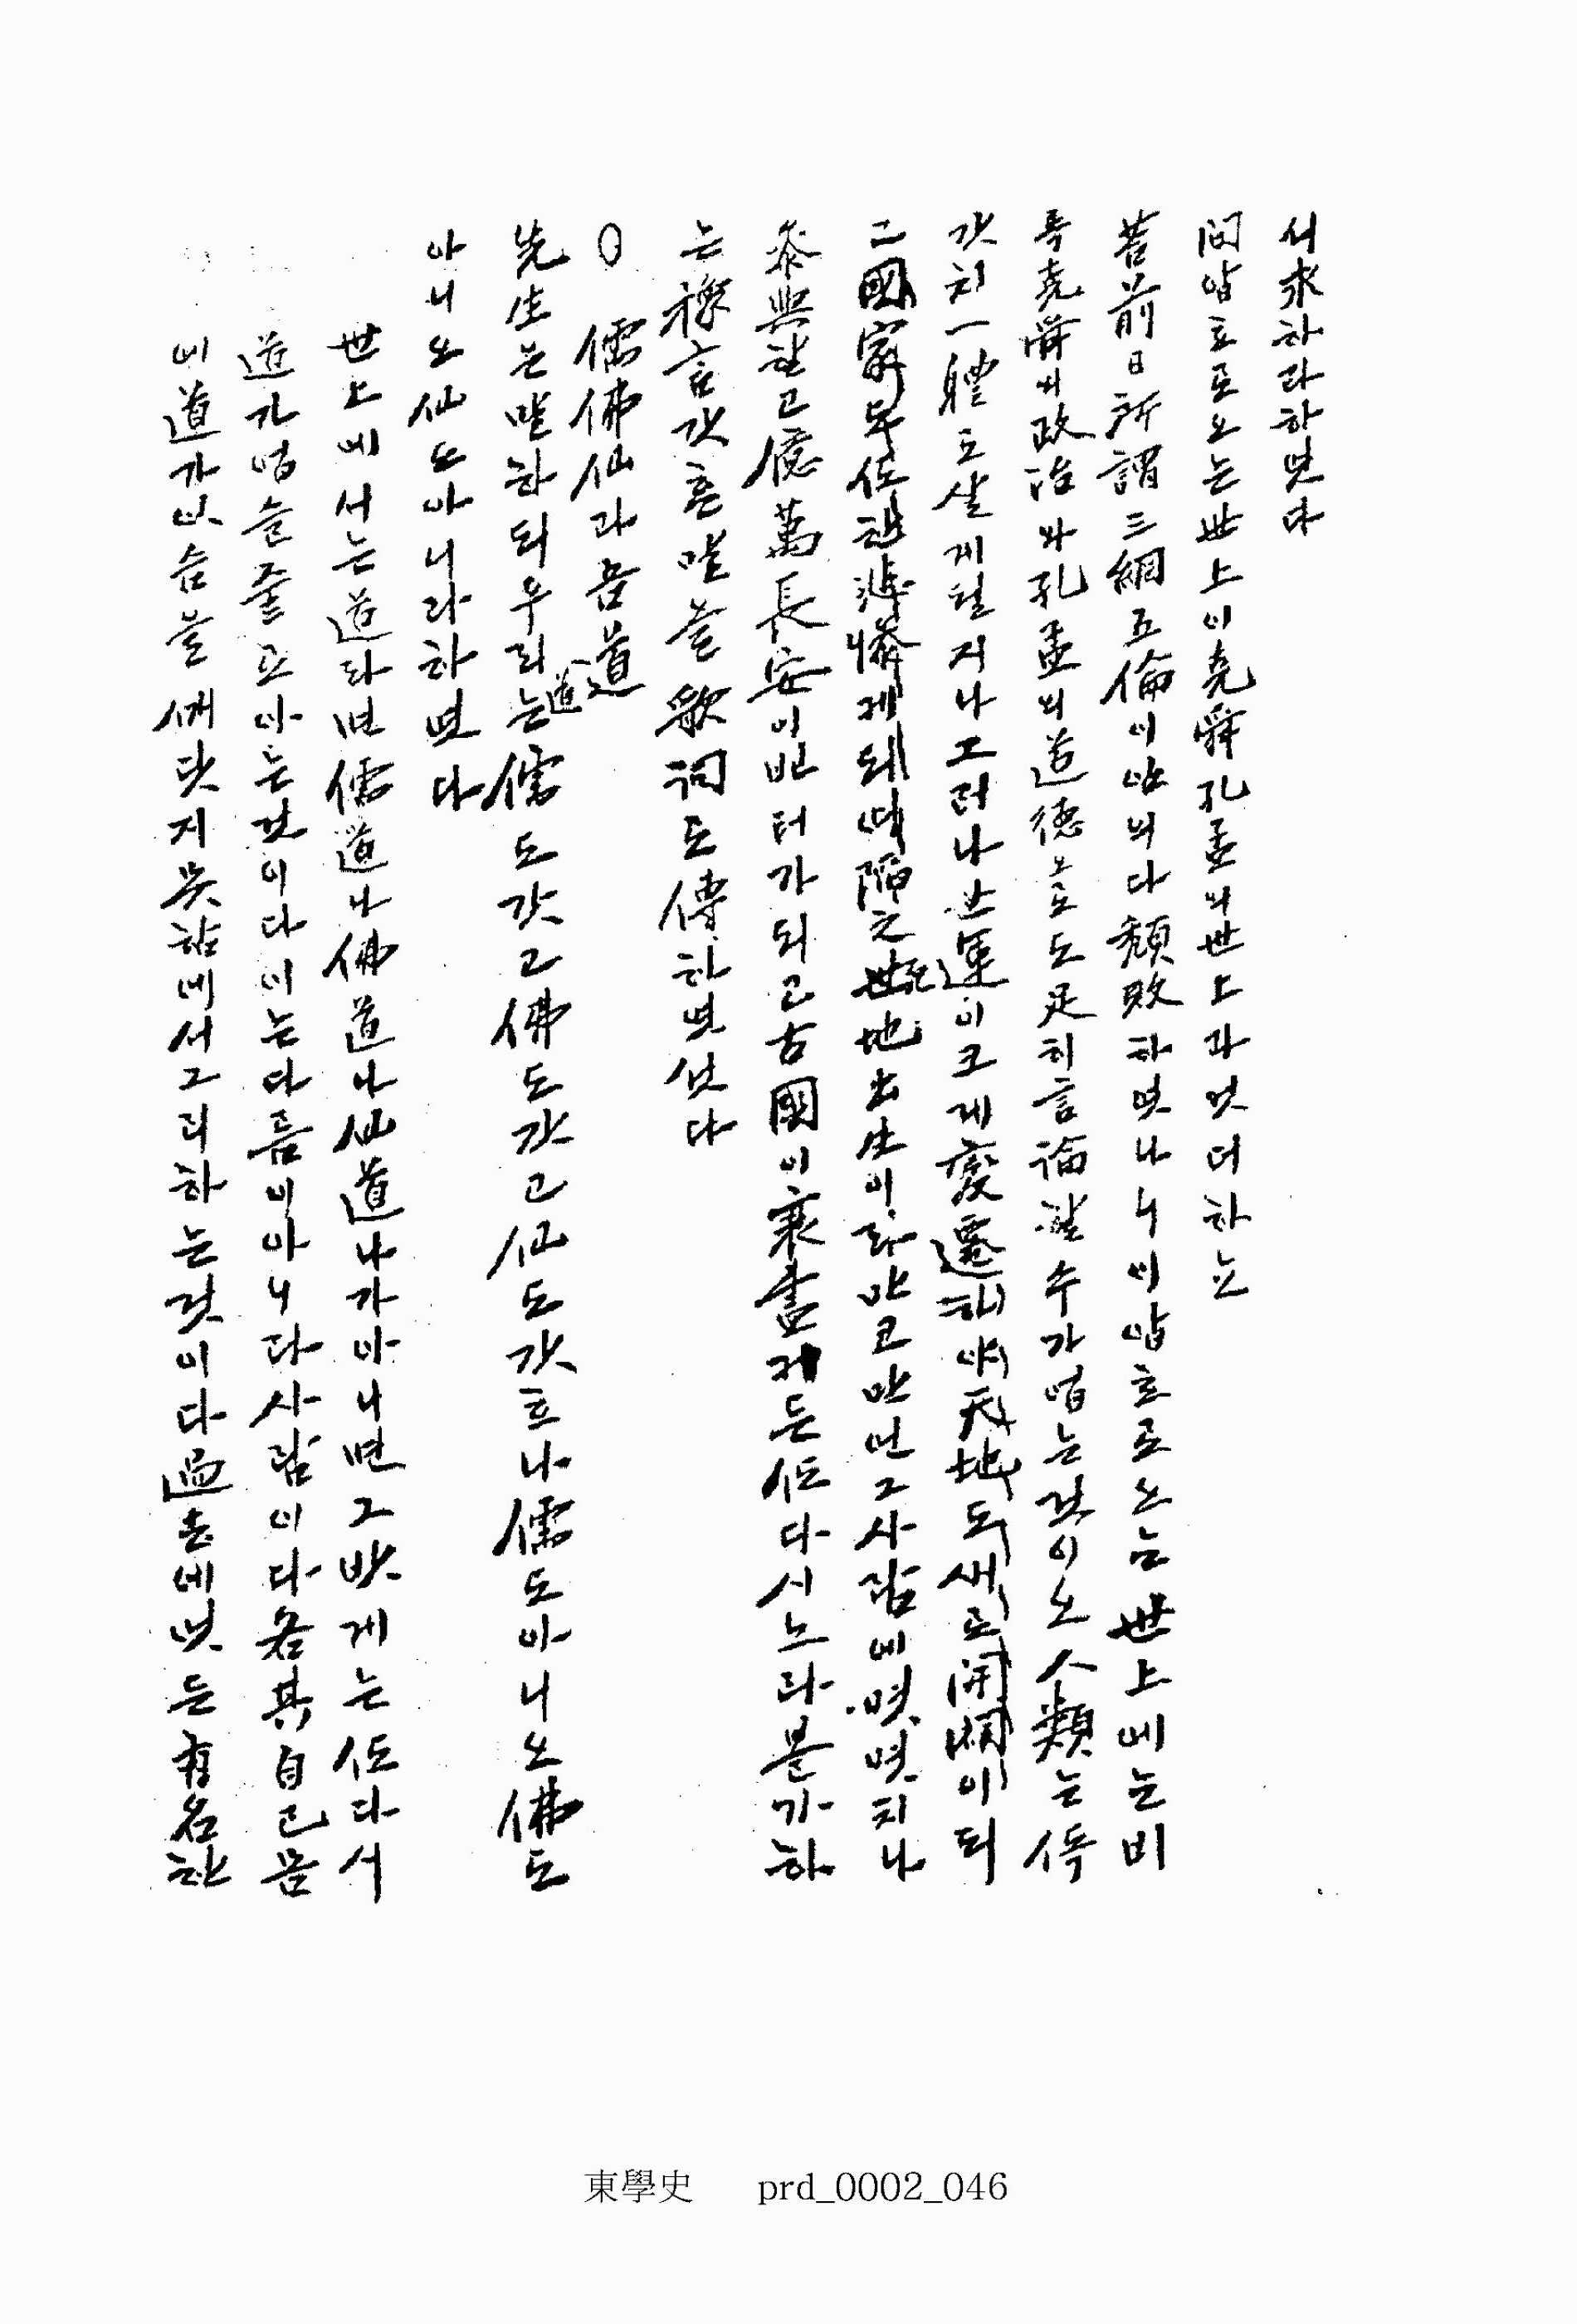 서求하라하엿다
問 압흐로오는世上이堯舜孔孟의世上과엇더하뇨
答 前日所謂三綱五倫이임의다頹敗하엿나니이압흐로오는世上에는비
록堯舜의政治와孔孟의道德으로도足히言論할수가업는것이오人類는
갓치一體로살게될지나그러나世運이크게變遷하야天地도새로開闢이되
고國家도또한悲慘게되며陷之死地出生이라만코만언그사람에엿엿치나
泰興하고億萬長安이빈터가되고古國이衰盡커든또다시노라볼가하
는豫言갓흔말을歌詞로傳하엿섯다
○ 儒佛仙과吾道
先生은말하되우리道는儒도갓고佛도갓고仙도갓흐나儒도아니오佛도
아니오仙도아니라하엿다
世上에서는道라면儒道나佛道나仙道나가아니면그밧게는또다시
道가업슬줄로아는것이다이는다름이아니라사람이다各其自己몸
에道가잇슴을깨닷지못함에서그리하는것이다過去에엿든有名한
東學史 prd_0002_046